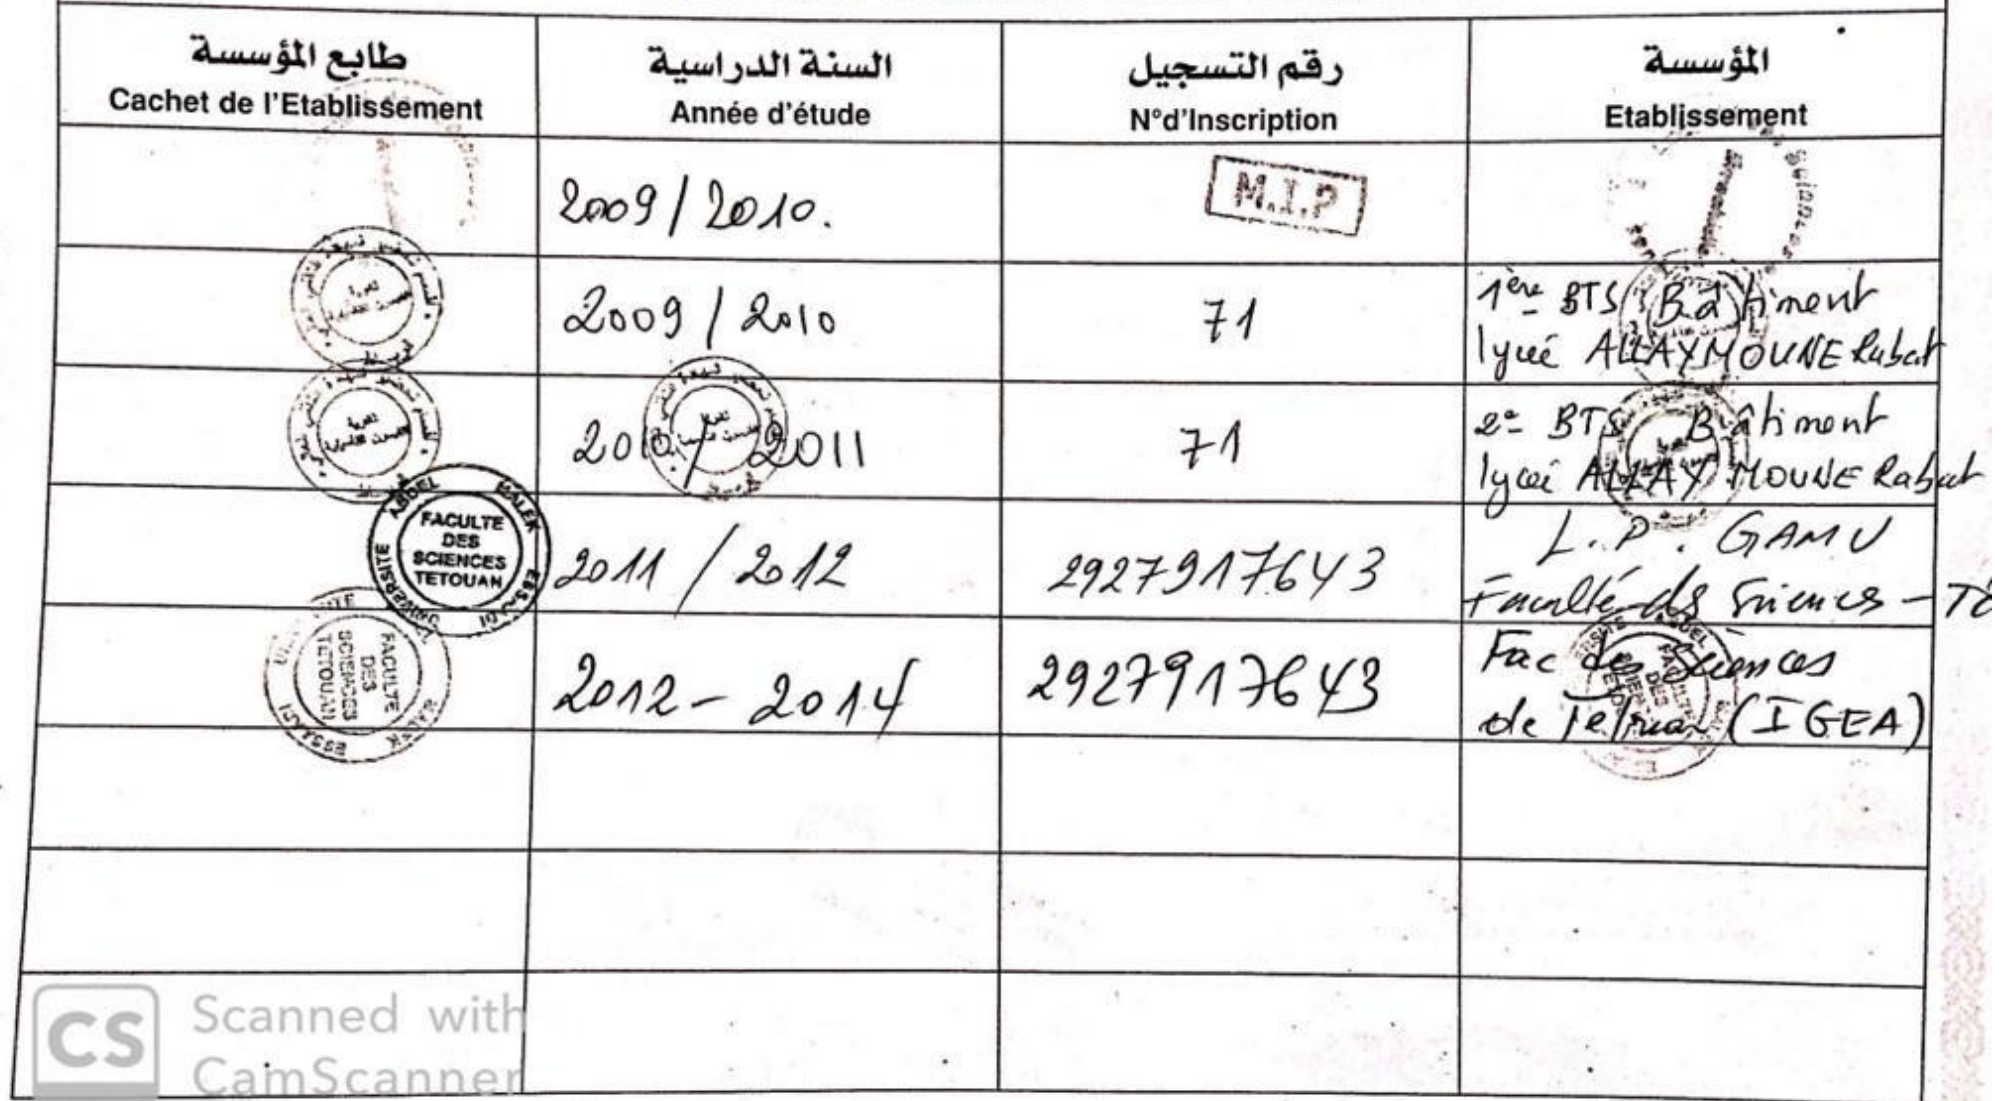 طابع المؤسسة
Cachet de l'Etablissement
السنة الدراسية
Année d'étude
رقم التسجيل
N°d'Inscription
المؤسسة
Etablissement
2009/2010.
M.I.P
2009/2010
71
1ère BTS Bâtiment
lycée ALLAYMOUNE Rabat
2010/2011
71
2e BTS Bâtiment
lycée ALLAYMOUNE Rabat
UNIVERSITE ABDEL MALEK ESSADI
FACULTE
DES
SCIENCES
TETOUAN
2011/2012
2927917643
L.P. GAMU
Faculté des Sciences - Té
FACULTE
DES
SCIENCES
TETOUAN
MALEK ESSADI
2012-2014
2927917643
Fac des Sciences
de Tetouan (IGEA)
CS Scanned with
CamScanner